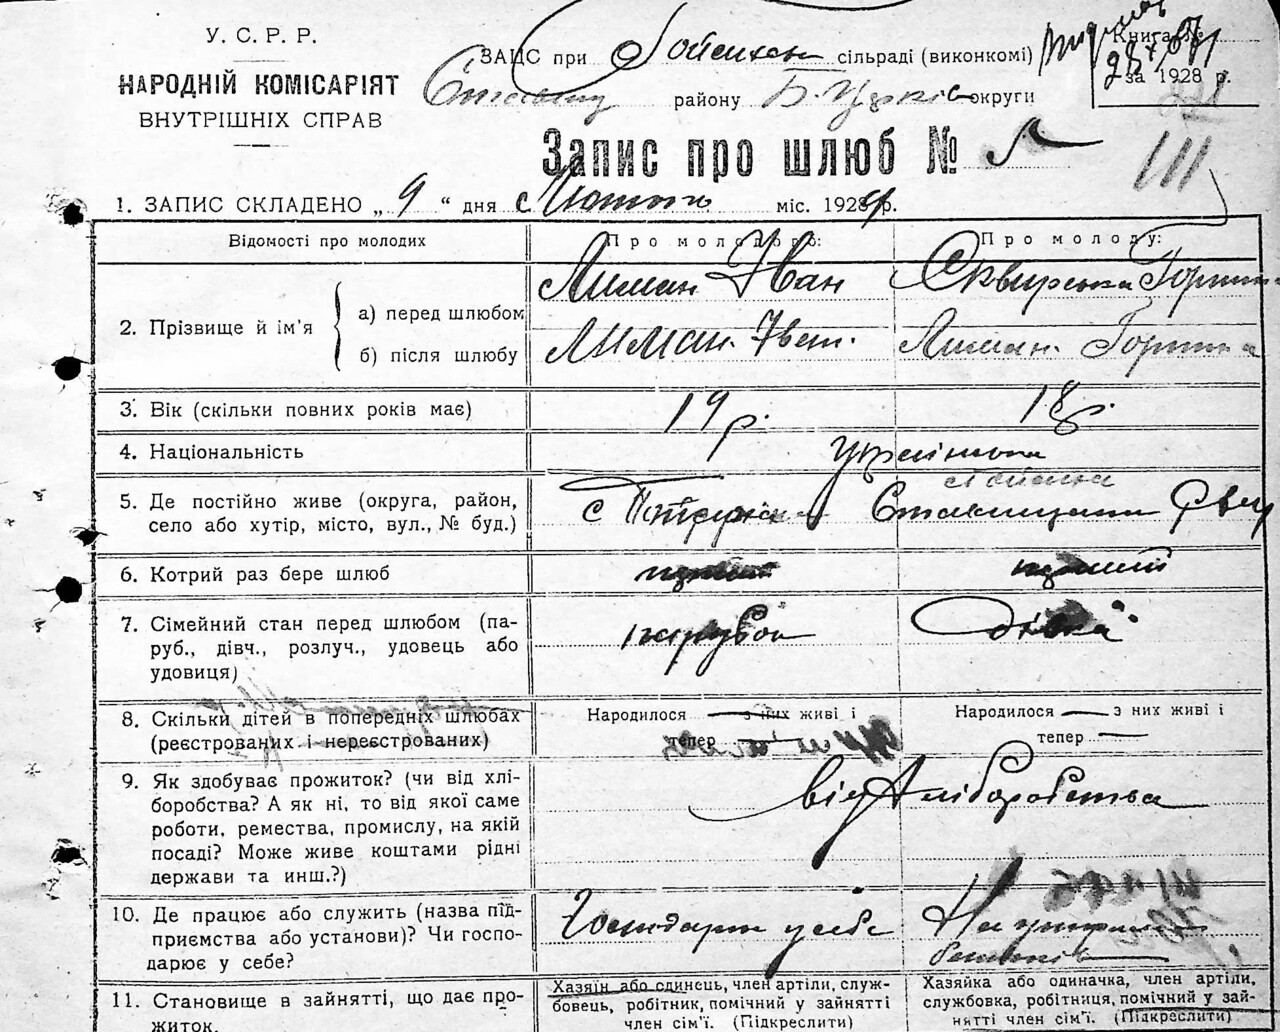 У. С. Р. Р.
НАРОДНІЙ КОМІСАРІЯТ
ВНУТРІШНІХ СПРАВ
ЗАЦС при сільраді (виконкомі)
району Б. Церків округи
Книга №
за 1928 р.
Запис про шлюб № 5
1. ЗАПИС СКЛАДЕНО „ 9 “ дня с Лютого міс. 1928 р.
Відомості про молодих
Про молодого:
Про молоду:
2. Прізвище й ім’я
а) перед шлюбом
Лиман Іван
Сквирська Горпина
б) після шлюбу
Лиман Іван.
Лиман. Горпина
3. Вік (скільки повних років має)
19 р.
18 р.
4. Національність
українська
5. Де постійно живе (округа, район,
село або хутір, місто, вул., № буд.)
с
6. Котрий раз бере шлюб
перший
перший
7. Сімейний стан перед шлюбом (па-
руб., дівч., розлуч., удовець або
удовиця)
парубок
дівка
8. Скільки дітей в попередніх шлюбах
(реєстрованих і нереєстрованих)
Народилося — з них живі і
тепер —
Народилось — з них живі і
тепер —
9. Як здобуває прожиток? (чи від хлі-
боробства? А як ні, то від якої саме
роботи, ремества, промислу, на якій
посаді? Може живе коштами рідні
держави та инш.?)
від хліборобства
10. Де працює або служить (назва під-
приємства або установи)? Чи госпо-
дарює у себе?
Господарює у себе
На утриманні
батьків
11. Становище в зайнятті, що дає про-
житок.
Хазяїн або одинець, член артілі, служ-
бовець, робітник, помічний у зайнятті
член сім’ї. (Підкреслити)
Хазяйка або одиначка, член артіли,
службовка, робітниця, помічний у зай-
нятті член сім’ї. (Підкреслити)